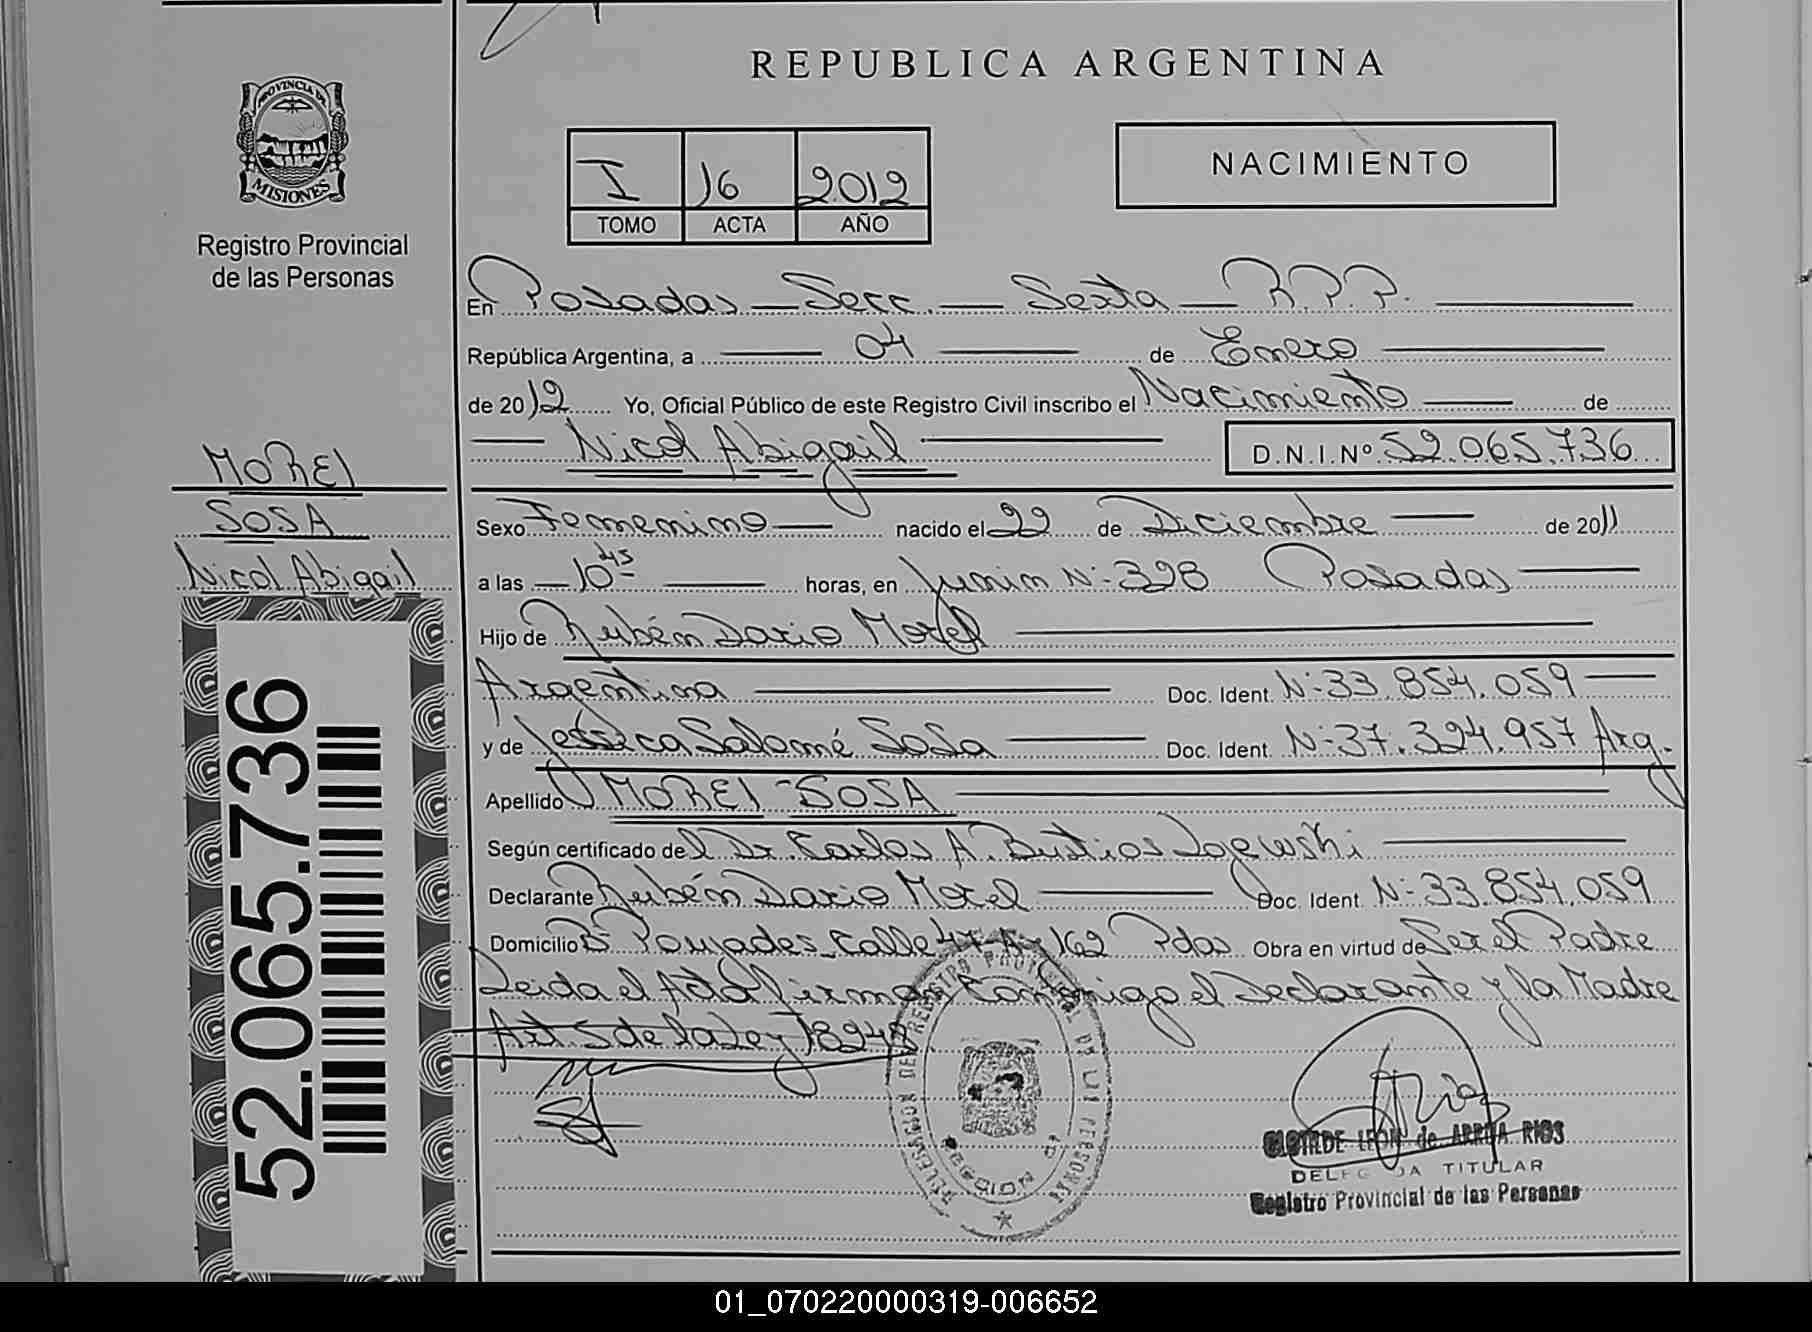 REPUBLICA ARGENTINA
PROVINCIA DE
MISIONES
Registro Provincial
de las Personas
I 16 2012
TOMO ACTA AÑO
NACIMIENTO
En Posadas — Secc. — Sexta — R.P.P.
República Argentina, a 04 de Enero
de 2012 Yo, Oficial Público de este Registro Civil inscribo el Nacimiento de
Nicol Abigail D.N.I.Nº 52.065.736
MOREl
SOSA
Nicol Abigail
52.065.736
Sexo Femenino nacido el 22 de Diciembre de 2011
a las 10 45 horas, en Junin Nº 398 Posadas
Hijo de Rubén Dario Morel
Argentina Doc. Ident. Nº 33.854.059
y de Jessica Salomé Sosa Doc. Ident. Nº 37.324.957 Arg.
Apellido MOREl - SOSA
Según certificado del Dr. Carlos A. Bustios
Declarante Rubén Dario Morel Doc. Ident. Nº 33.854.059
Domicilio Bº Calle 47 A 162 Pdas Obra en virtud de Ser el Padre
Leida el Acta firman Conmigo el Declarante y la Madre
Art 5 de la Ley 18248
DELEGACION DEL REGISTRO PROVINCIAL DE LAS PERSONAS
REGION
CLOTILDE LEON de ARRUA RIOS
DELEGADA TITULAR
Registro Provincial de las Personas
01_070220000319-006652